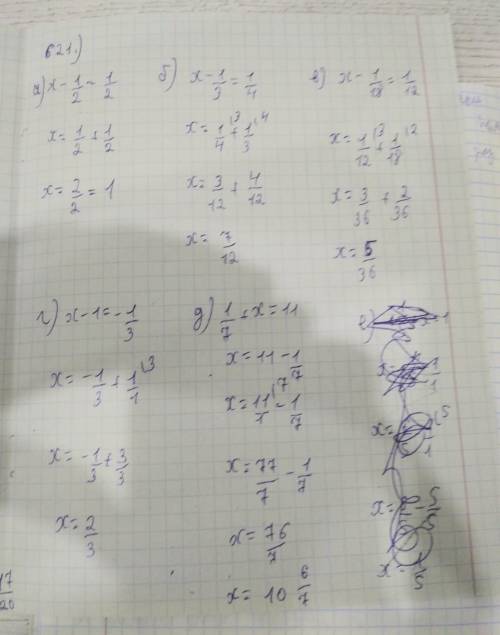 621.)
а) x - 1/2 = 1/2
x = 1/2 + 1/2
x = 2/2 = 1
б) x - 1/3 = 1/4
x = 1/4 \3 + 1/3 \4
x = 3/12 + 4/12
x = 7/12
в) x - 1/18 = 1/12
x = 1/12 \3 + 1/18 \2
x = 3/36 + 2/36
x = 5/36
г) x - 1 = - 1/3
x = - 1/3 + 1/1 \3
x = - 1/3 + 3/3
x = 2/3
д) 1/7 + x = 11
x = 11 - 1/7
x = 11/1 \7 - 1/7
x = 77/7 - 1/7
x = 76/7
x = 10 6/7
е)
x =
x =
x =
x =
17/20